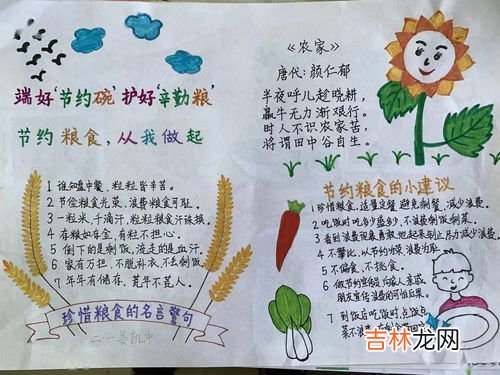 端好‘节约碗’护好‘辛勤粮’
节约粮食，从我做起
1 谁知盘中餐，粒粒皆辛苦。
2 节俭粮食光荣，浪费粮食可耻。
3 一粒米，千滴汗，粒粒粮食汗珠换。
4 存粮如存金，有粮不担心。
5 倒下的是剩饭，流走的是血汗。
6 家有万担，不脱补衣，不丢剩饭
7 年年有储存，荒年不荒人。
珍惜粮食的名言警句
二·一 姜凯中
《农家》
唐代：颜仁郁
半夜呼儿趁晓耕，
羸牛无力渐艰行。
时人不识农家苦，
将谓田中谷自生。
节约粮食的小建议
1 珍惜粮食，适量定餐，避免剩餐，减少浪费。
2 吃饭时吃多少盛多少，不浪费剩饭剩菜。
3 看到浪费现象勇敢地起来制止，尽力减少浪费。
4 不攀比，从节约为荣，浪费为耻
5 不偏食，不挑食。
6 做节约宣传员，向家人亲戚
朋友宣传浪费的可怕后果。
7 到饭店吃饭时，点饭点
菜不浪费，
吉林龙网